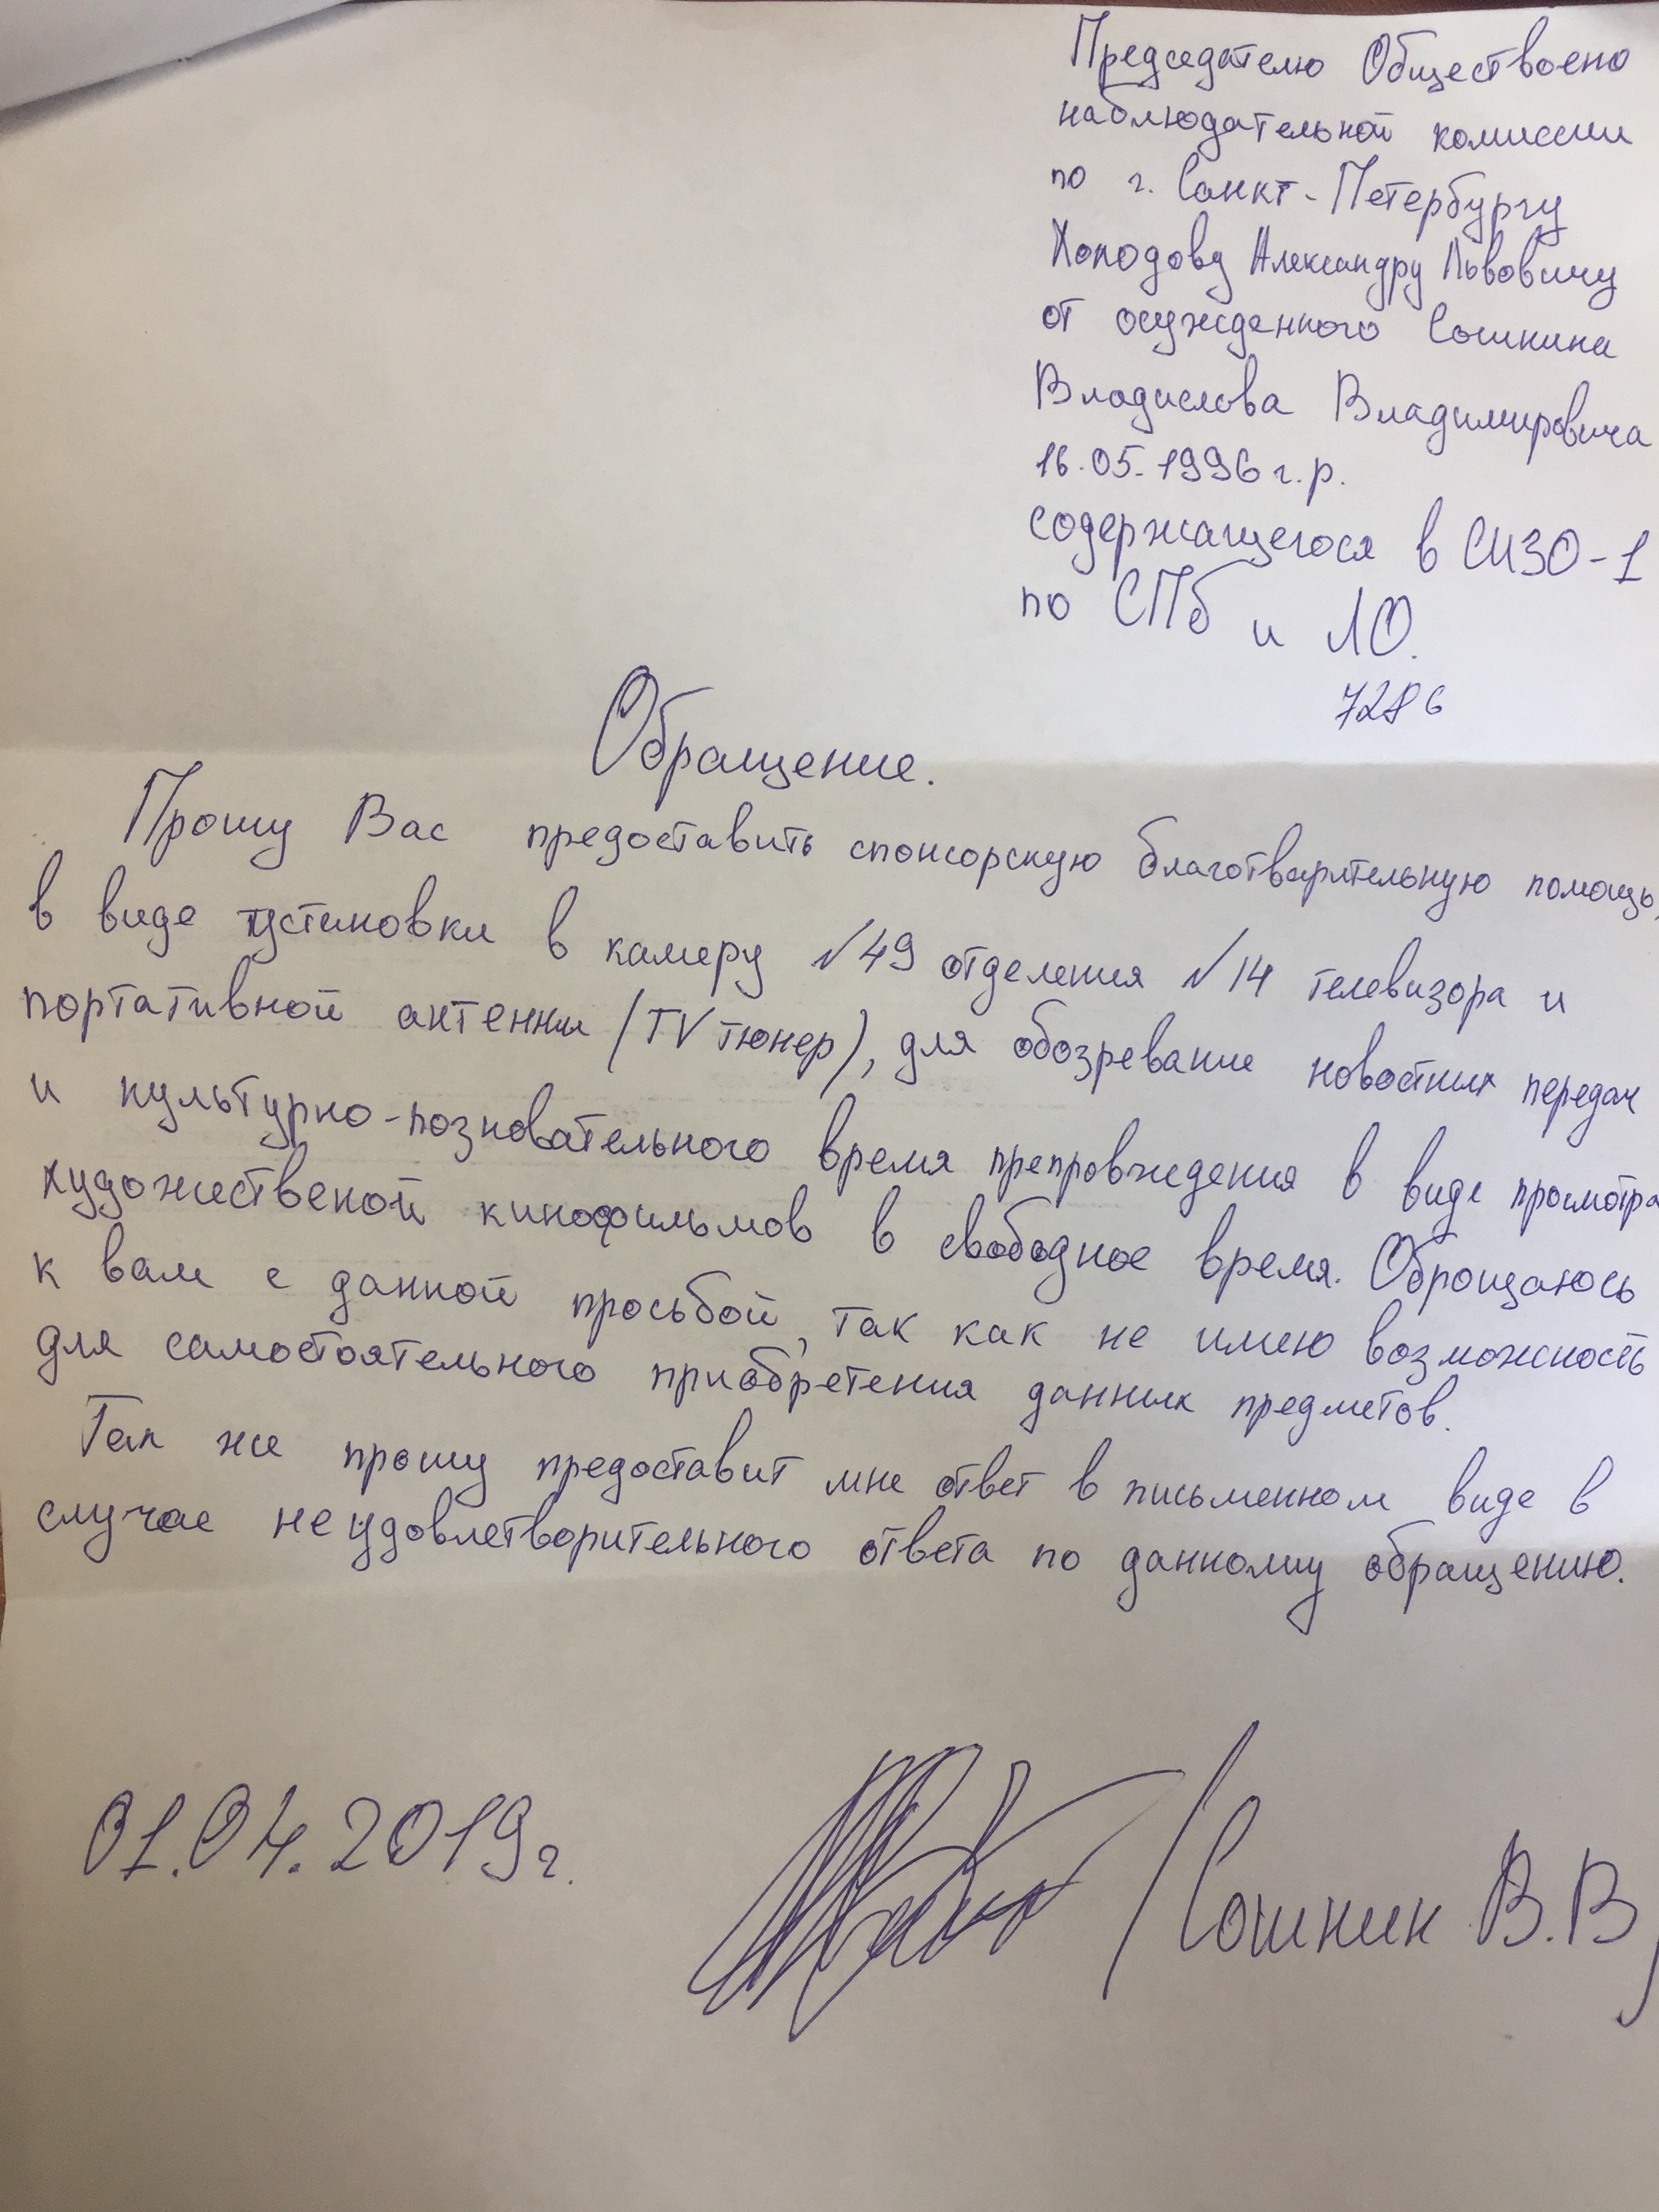 Председателю Обществоено
наблюдательной комиссии
по г. Санкт-Петербургу
Холодову Александру Львовичу
от осужденного Сошкина
Владислава Владимировича
16.05.1996 г.р.
содержащегося в СИЗО-1
по СПб и ЛО.
7286
Обращение.
Прошу Вас предоставить спонсорскую благотварительную помощь,
в виде устоновки в камеру №49 отделения №14 телевизора и
портативной антенны (TV тюнер), для обозревание новостных передач
и культурно-позновательного время препровждения в виде просмотра
художественой кинофильмов в свободное время. Оброщаюсь
к вам с данной просьбой, так как не имею возможность
для самостоятельного приобретения данных предметов.
Так же прошу предоставит мне ответ в письменном виде в
случае неудовлетворительного ответа по данному обращению.
01.04.2019г. /Сошкин В.В/